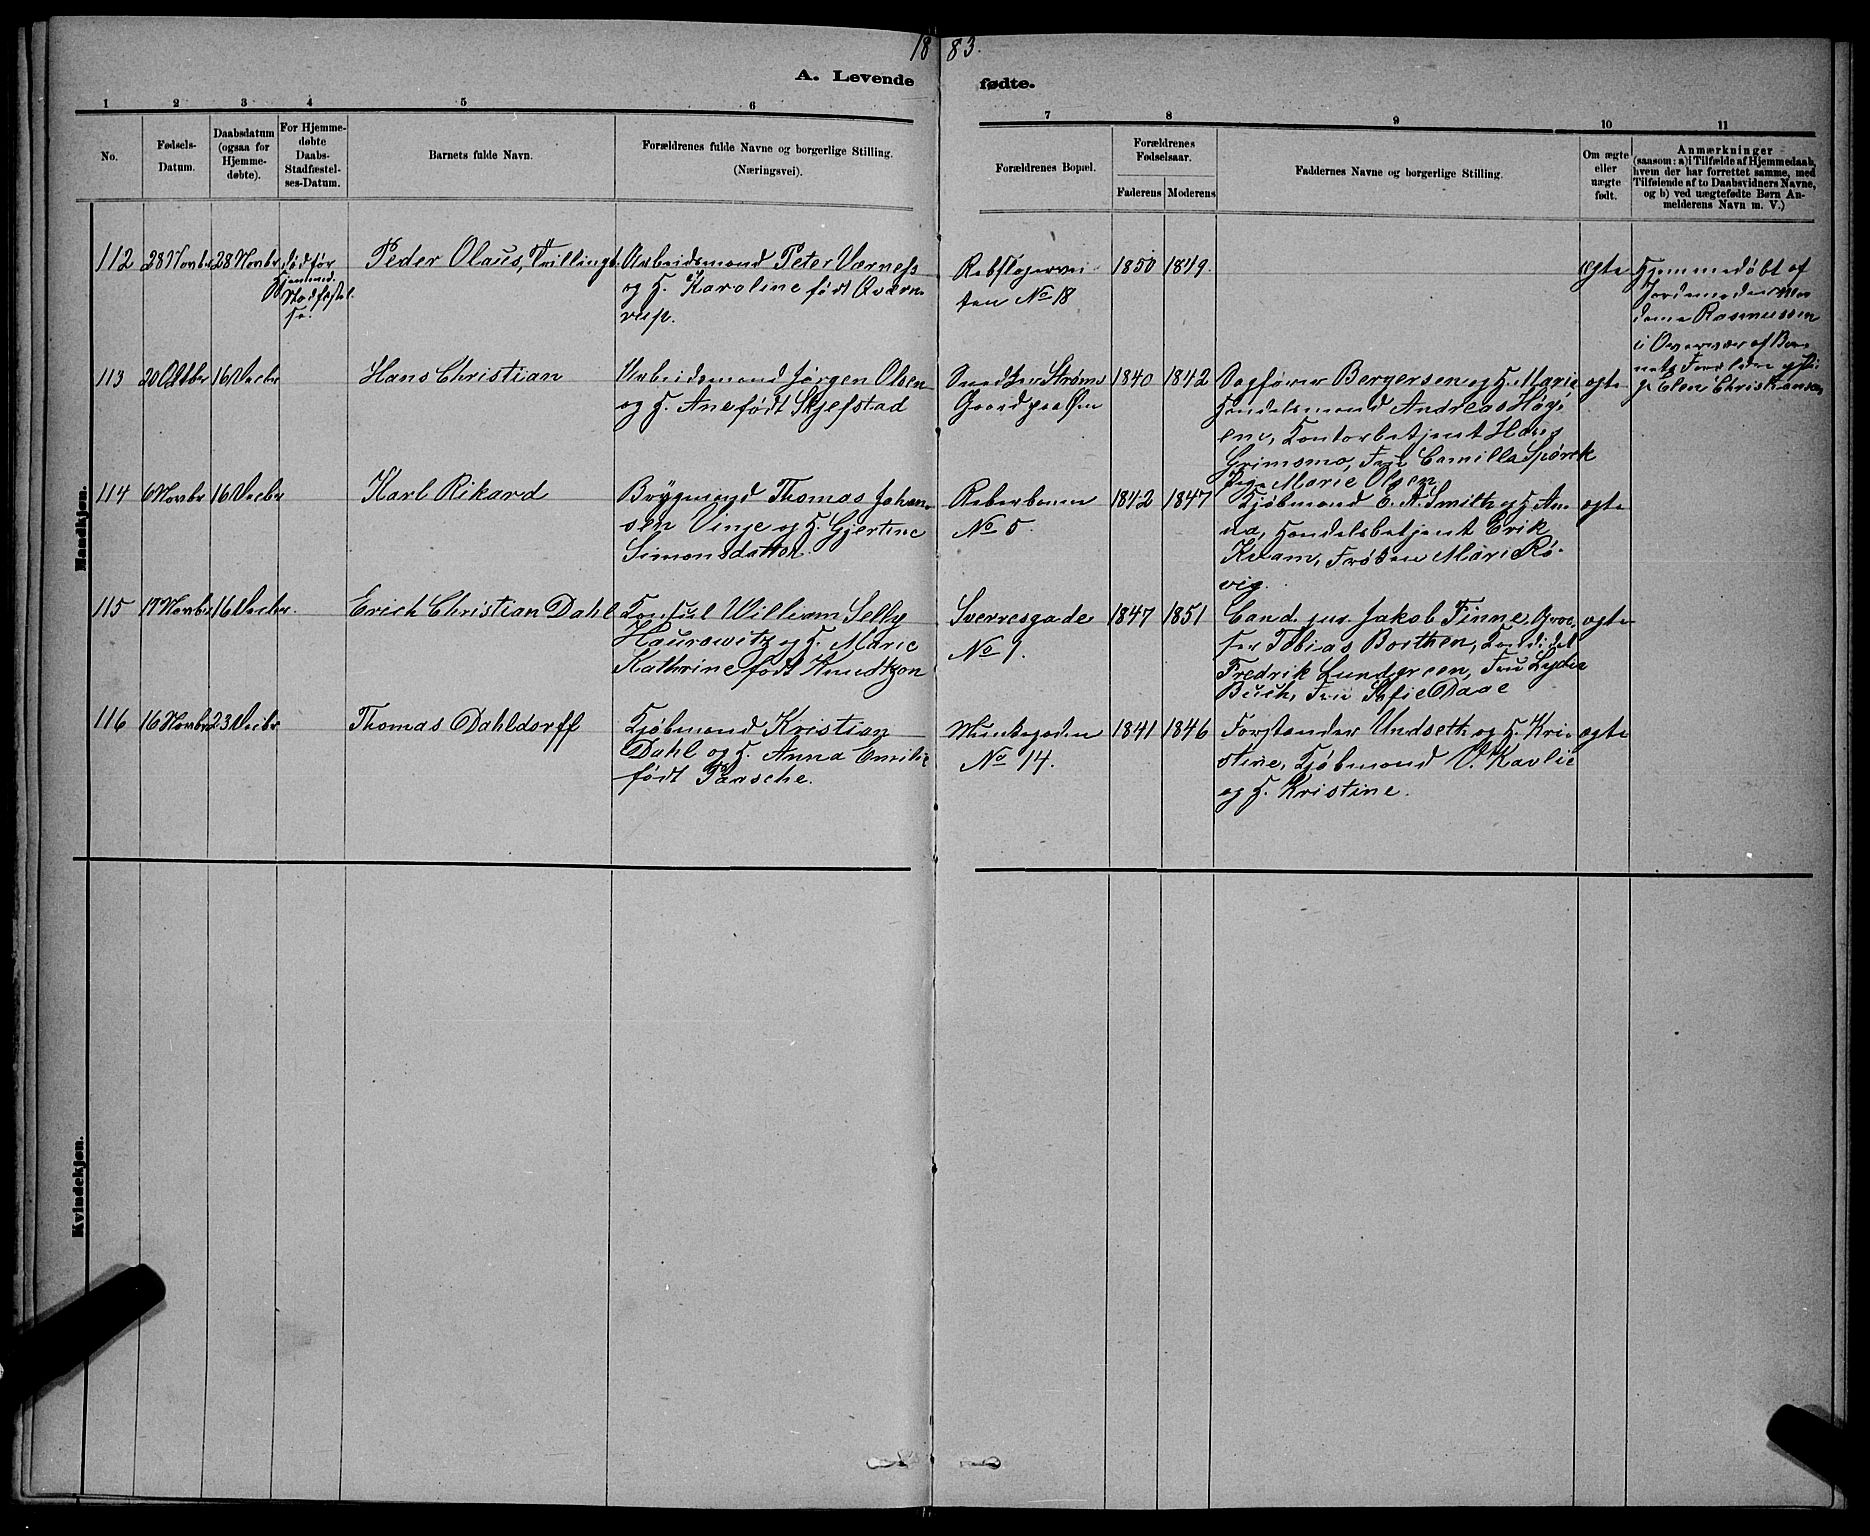 1883.
A. Levende fødte.
1 2 3 4 5 6 7 8 9 10 11
No.
Fødsels-
Datum.
Daabsdatum
(ogsaa for
Hjemme-
døbte).
For Hjemme-
døbte
Daabs-
Stadfæstel-
ses-Datum.
Barnets fulde Navn.
Forældrenes fulde Navne og borgerlige Stilling.
(Næringsvei).
Forældrenes Bopæl.
Forældrenes
Fødselsaar.
Faderens Moderens
Faddernes Navne og borgerlige Stilling.
Om ægte
eller
uægte
født.
Anmærkninger
(saasom: a) i Tilfælde af Hjemmedaab,
hvem der har forrettet samme, med
Tilføiende af to Daabsvidners Navne,
og b) ved uægtefødte Børn An-
melderens Navn m. V.)
Mandkjøn.
112
28 Novbr
28 Novbr
død før
Stadfæstel-
se.
Peder Olaus, Tvilling
Arbeidsmand Peter Værnes
og H. Karoline født
Rebslagervei
ten No 18
1850
1849.
ægte
Hjemmedøbt af
Jordemoder Ma
dame Rasmussen
i Overvær af Bar
nets Forældre og Pi
ge Elen Christiansen
113
20 Oktbr
16 Decbr
Hans Christian
Arbeidsmand Jørgen Olsen
og H. Ane født Skjefstad
Snedker Strøms
Gaard paa Øen
1840
1842
Sagfører Bergersen og H. Marie
Handelsmand Andreas Høy-
em, Kontorbetjent Hans
Grimsmo, Frk Camilla Spørck
Pige Marie Olsen
ægte
114
6 Novbr
16 Decbr
Karl Rikard
Brygmand Thomas Johan-
sen Vinje og H. Gjertine
Simonsdatter.
Reberbanen
No 5.
1842
1847
Kjøbmand E. A. Smith og H. An-
na, Handelsbetjent Erik
Kvam, Frøken Marie Rø-
vig.
ægte
115
17 Novbr
16 Decbr.
Erich Christian Dahl
Konsul William Selby
Haurowitz og H. Marie
Kathrine født Knudtzon
Sverresgade
No 9.
1847
1851
Cand. jur. Jakob Finne, Gros-
ser Tobias Borthen, Kandidat
Fredrik Lundgreen, Fru Lydia
Buch, Fru Sofie Daae
ægte
116
16 Novbr
23 Decbr
Thomas Dahldorff
Kjøbmand Kristian
Dahl og H. Anna Emilie
født Paasche.
Munkegaden
No 14.
1841
1846
Forstander Undseth og H. Kri-
stine, Kjøbmand V. Kavlie
og H. Kristine.
ægte
Kvindekjøn.